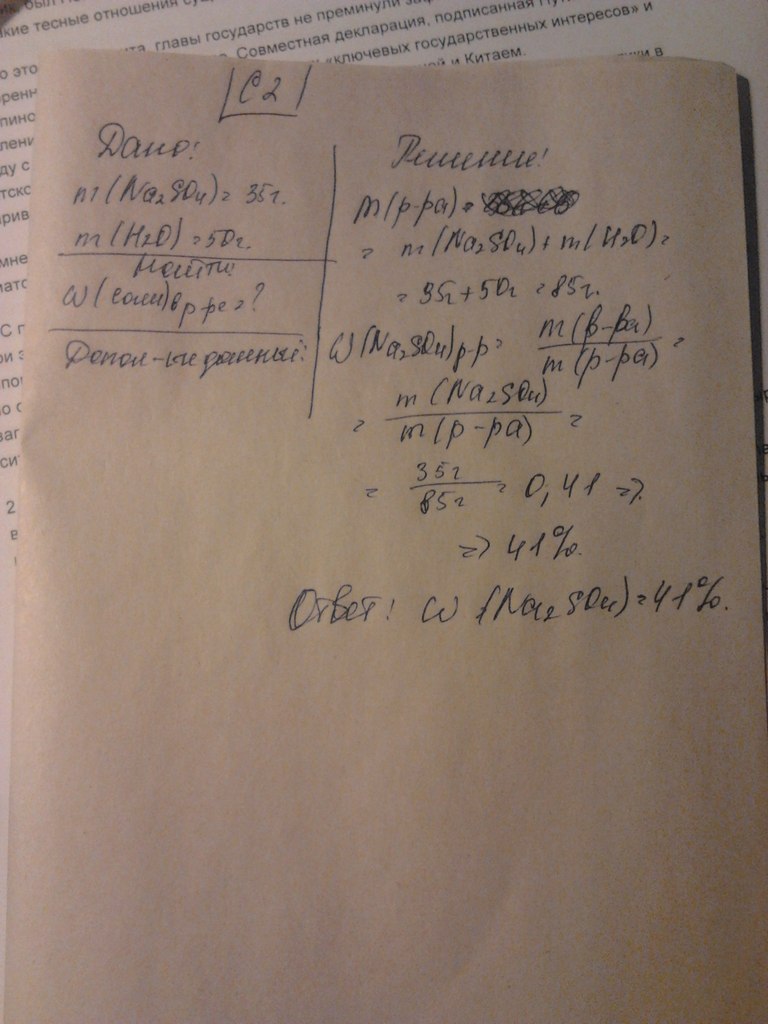 такие тесные отношения
главы государств не преминули
Совместная декларация, подписанная
«ключевых государственных интересов» и
и Китаем.
С2
Дано!
m(Na2SO4) = 35г.
m(H2O) = 50г.
Найти:
ω(соли)в р-ре = ?
Допол-ые данный:
Решение!
m(р-ра) =
= m(Na2SO4) + m(H2O) =
= 35г + 50г = 85г.
ω(Na2SO4)р-р = m(в-ва) / m(р-ра) =
= m(Na2SO4) / m(р-ра) =
= 35г / 85г = 0,41 =>
=> 41%.
Ответ! ω(Na2SO4) = 41%.